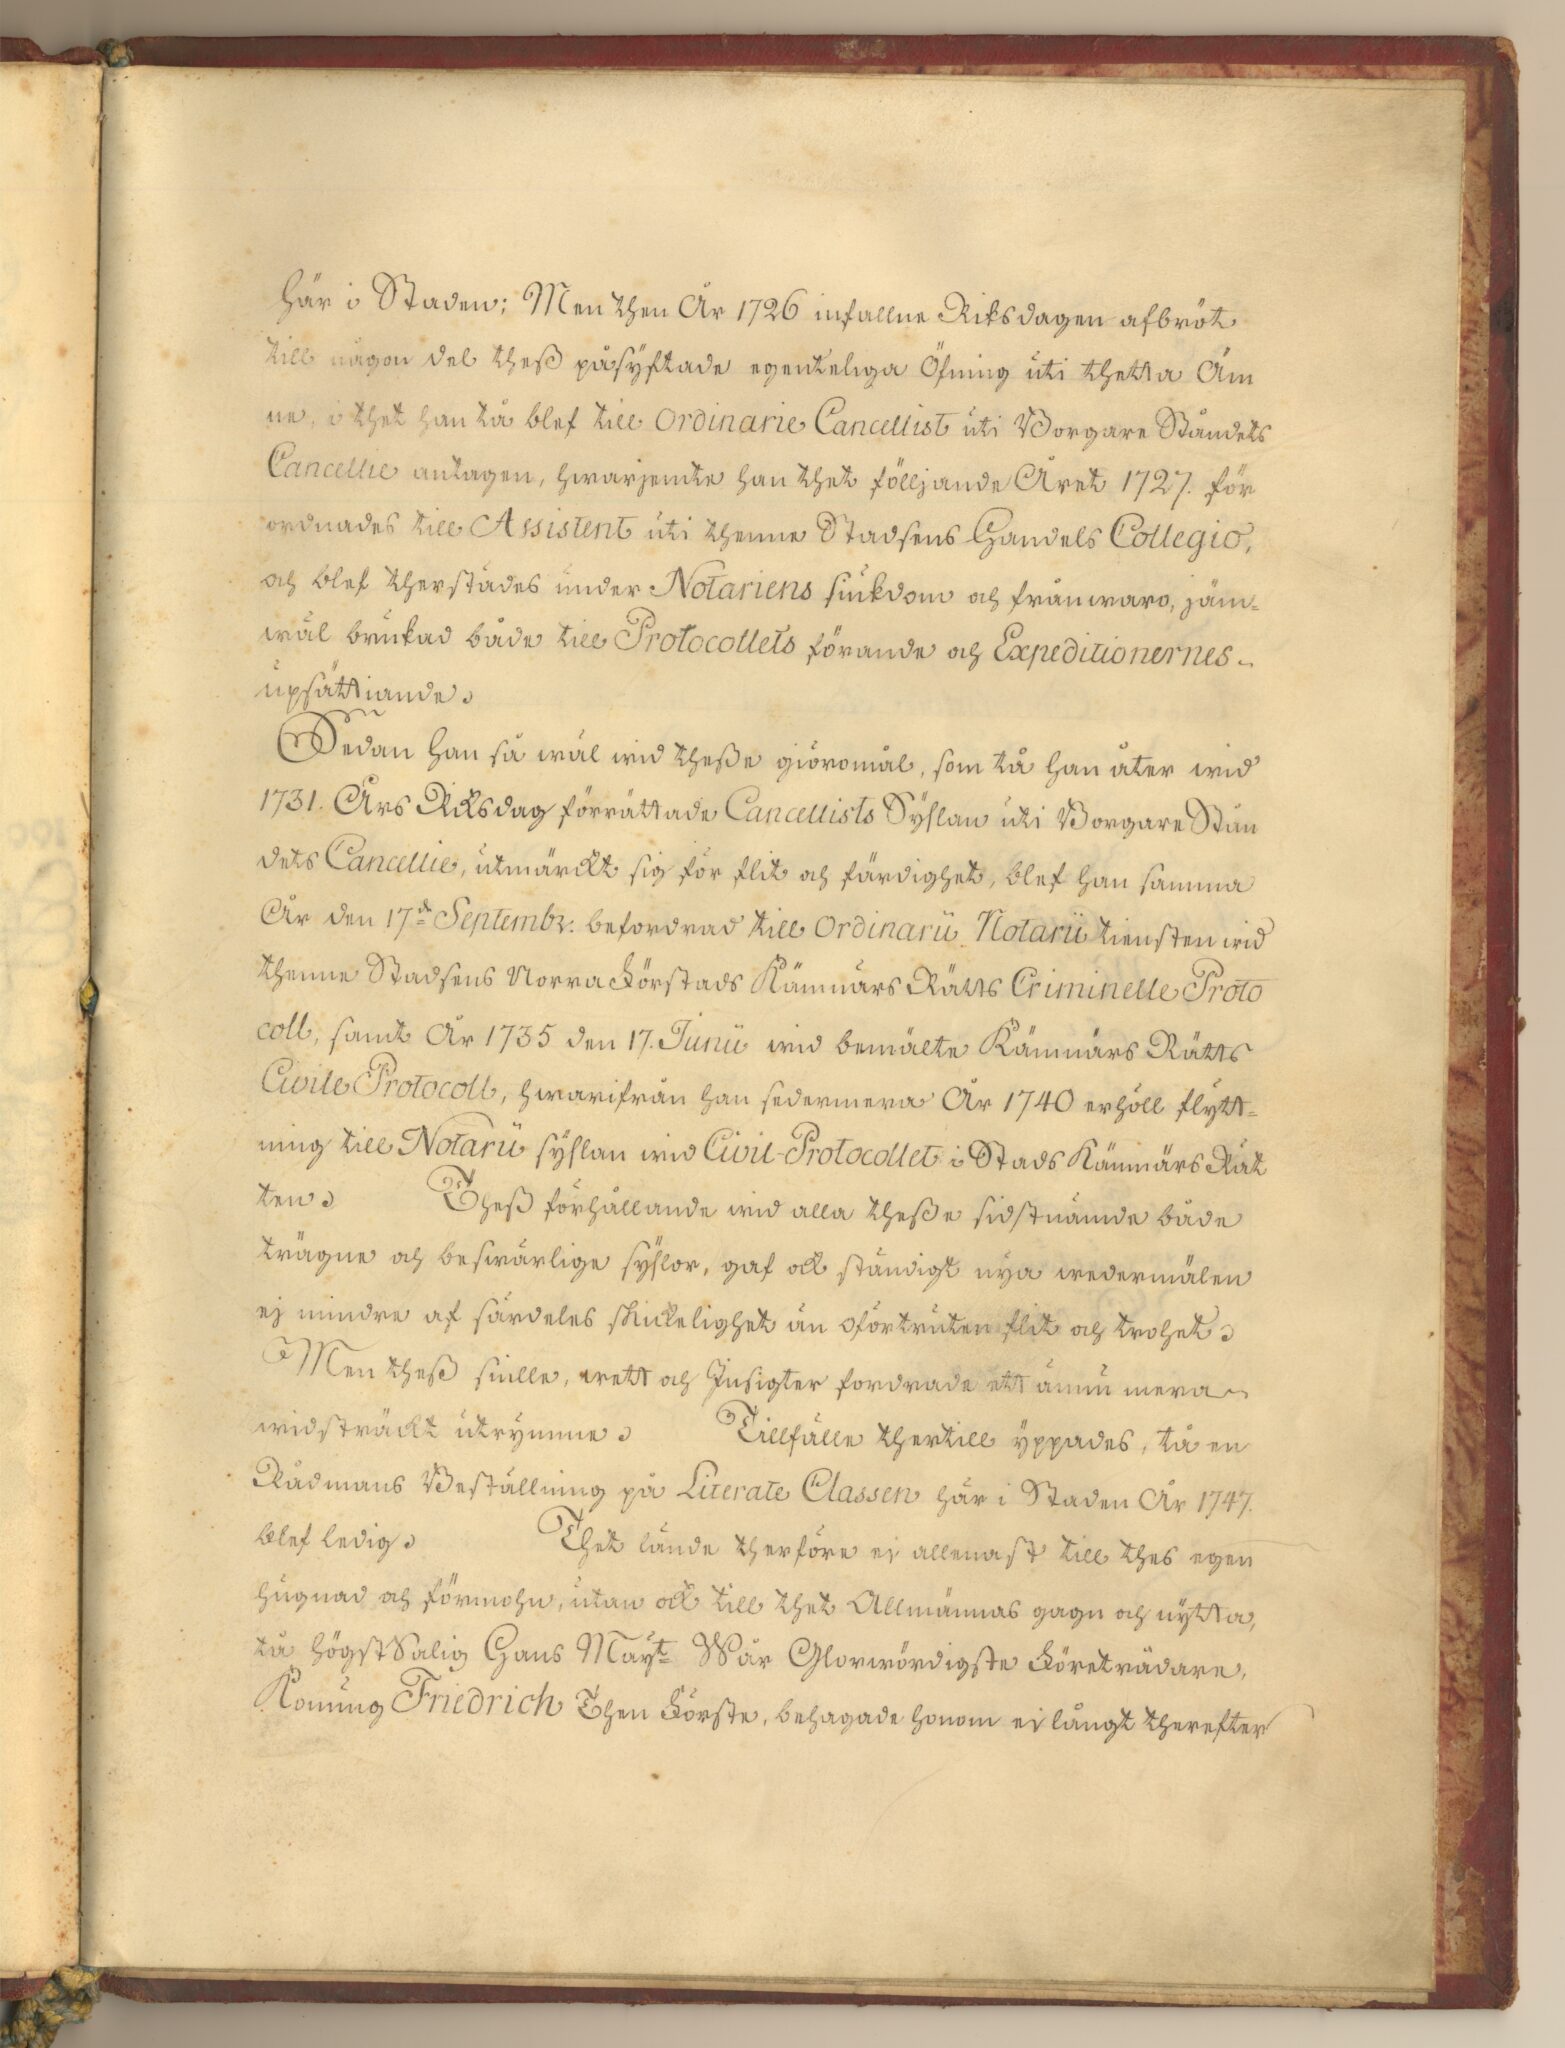 här i Staden; Men then År 1726 infallne Riksdagen afbröt
till någon del theß påsyftade egenteliga Öfning uti thetta Äm
ne, i thet han tå blef till Ordinarie Cancellist uti Borgare Ståndets
Cancellie antagen, hwarjemte han thet följjande Året 1727. för
ordnades till Assistent uti thenne Stadsens Handels Collegio,
och blef therstädes under Notariens siukdom och frånwaro, jäm-
wäl brukad både till Protocollets förande och Expeditionernes
upsättiande.
Sedan han så wäl wid theße giöromål, som tå han åter wid
1731. Års Riksdag förrättade Cancellists Syßlan uti Borgare Stån
dets Cancellie, utmärckt sig för flit och färdighet, blef han samma
År den 17de Septembr. befordrad till Ordinarii Notarii tiensten wid
thenne Stadsens Norra Förstads Kämnärs Rätts Criminelle Proto
coll, samt År 1735 den 17. Junii wid bemälte Kämnärs Rätts
Civile Protocoll, hwarifrån han sedermera År 1740 erhöll flytt-
ning till Notarii syßlan wid Civil-Protocollet i Stads Kämnärs Rät
ten. Theß förhållande wid alla theße sidstnämde både
trägne och beswärlige syßlor, gaf ock ständigt nya wedermälen
ej mindre af särdeles skickelighet än oförtruten flit och trohet.
Men theß snille, wett och Insigter fordrade ett ännu mera
widsträckt utrymme. Tillfälle thertill yppades, tå en
Rådmans Beställning på Literate Classen här i Staden År 1747.
blef ledig. Thet lände therföre ej allenast till thes egen
hugnad och förmohn, utan ock till thet Allmännas gagn och nytta,
tå högstSalig Hans Mayt Wår Glorwördigste Företrädare,
Konung Friedrich Then Förste, behagade honom ej långt therefter